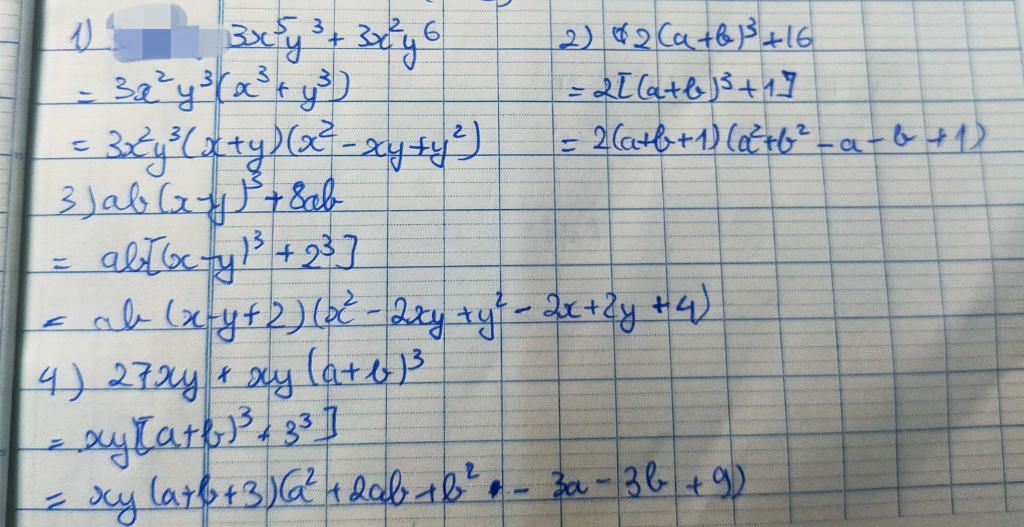 1) 3x⁵y³ + 3x²y⁶
= 3x²y³(x³ + y³)
= 3x²y³(x+y)(x² - xy + y²)
2) 2(a+b)³ + 16
= 2[(a+b)³ + 1]
= 2(a+b+1)(a² + b² - a - b + 1)
3) ab(x-y)³ + 8ab
= ab[(x-y)³ + 2³]
= ab (x-y+2)(x² - 2xy + y² - 2x + 2y + 4)
4) 27xy + xy (a+b)³
= xy[a+b)³ + 3³]
= xy (a+b+3)(a² + 2ab + b² - 3a - 3b + 9)